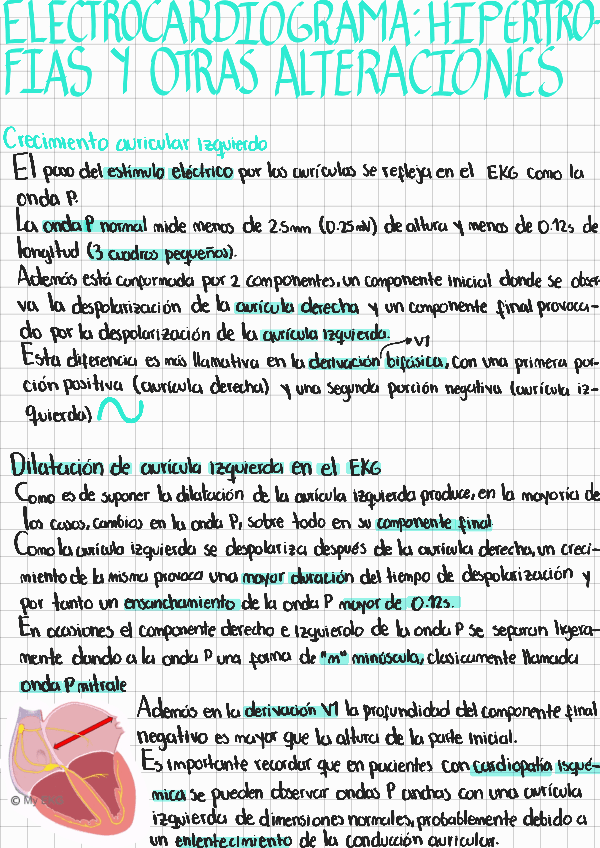 ELECTROCARDIOGRAMA: HIPERTRO-
FIAS Y OTRAS ALTERACIONES
Crecimiento auricular izquierdo
El paso del estímulo eléctrico por las aurículas se refleja en el EKG como la
onda P.
La onda P normal mide menos de 2.5mm (0.25mV) de altura y menos de 0.12s de
longitud (3 cuadros pequeños).
Además está conformada por 2 componentes, un componente inicial donde se obser-
va la despolarización de la aurícula derecha y un componente final provoca-
do por la despolarización de la aurícula izquierda.
V1
Esta diferencia es más llamativa en la derivación bifásica, con una primera por-
ción positiva (aurícula derecha) y una segunda porción negativa (aurícula iz-
quierda)
Dilatación de aurícula izquierda en el EKG
Como es de suponer la dilatación de la aurícula izquierda produce, en la mayoría de
los casos, cambios en la onda P, sobre todo en su componente final
Como la aurícula izquierda se despolariza después de la aurícula derecha, un creci-
miento de la misma provoca una mayor duración del tiempo de despolarización y
por tanto un ensanchamiento de la onda P mayor de 0.12s.
En ocasiones el componente derecho e izquierdo de la onda P se separan ligera-
mente dando a la onda P una forma de "m" minúscula, clasicamente llamada
onda P mitrale
Además en la derivación V1 la profundidad del componente final
negativo es mayor que la altura de la parte inicial.
Es importante recordar que en pacientes con cardiopatía isqué-
mica se pueden observar ondas P anchas con una aurícula
izquierda de dimensiones normales, probablemente debido a
un enlentecimiento de la conducción auricular.
© My